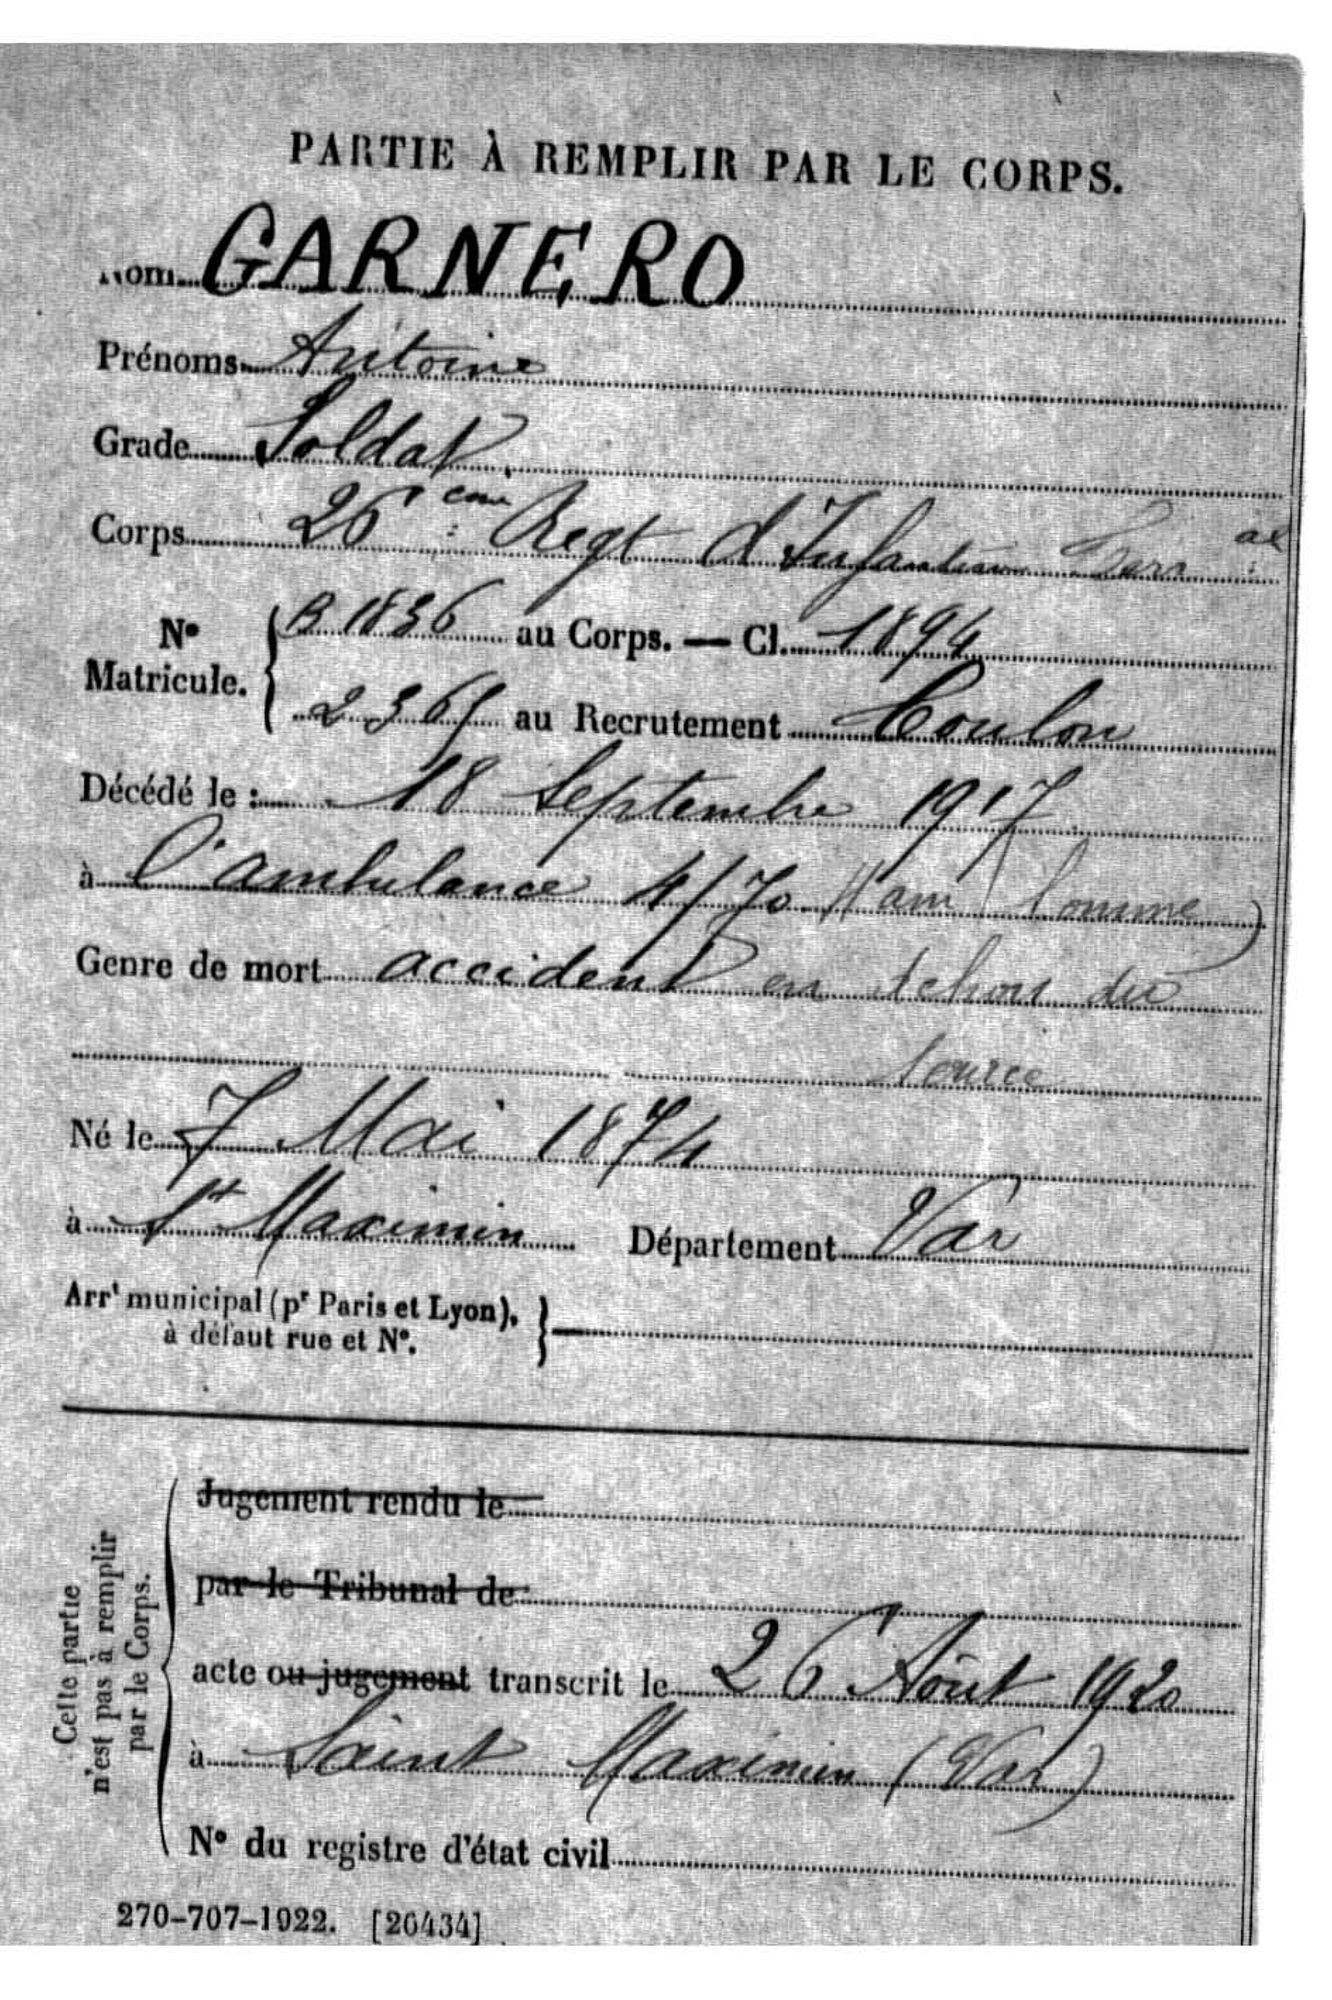 PARTIE À REMPLIR PAR LE CORPS.
Nom GARNERO
Prénoms Antoine
Grade Soldat.
Corps 26ème Regt d'Infanterie Terr al
N° Matricule. B 1836 au Corps. — Cl. 1894
2361 au Recrutement Toulon
Décédé le : 18 Septembre 1917
à l'ambulance 4/70 Ham (Somme)
Genre de mort accident en dehors du
service
Né le 7 Mai 1874
à St Maximin Département Var
Arrt municipal (pr Paris et Lyon),
à défaut rue et N°.
Cette partie n'est pas à remplir par le Corps.
Jugement rendu le
par le Tribunal de
acte ou jugement transcrit le 26 Août 1920
à Saint Maximin (Var)
N° du registre d'état civil
270-707-1922. [26434]